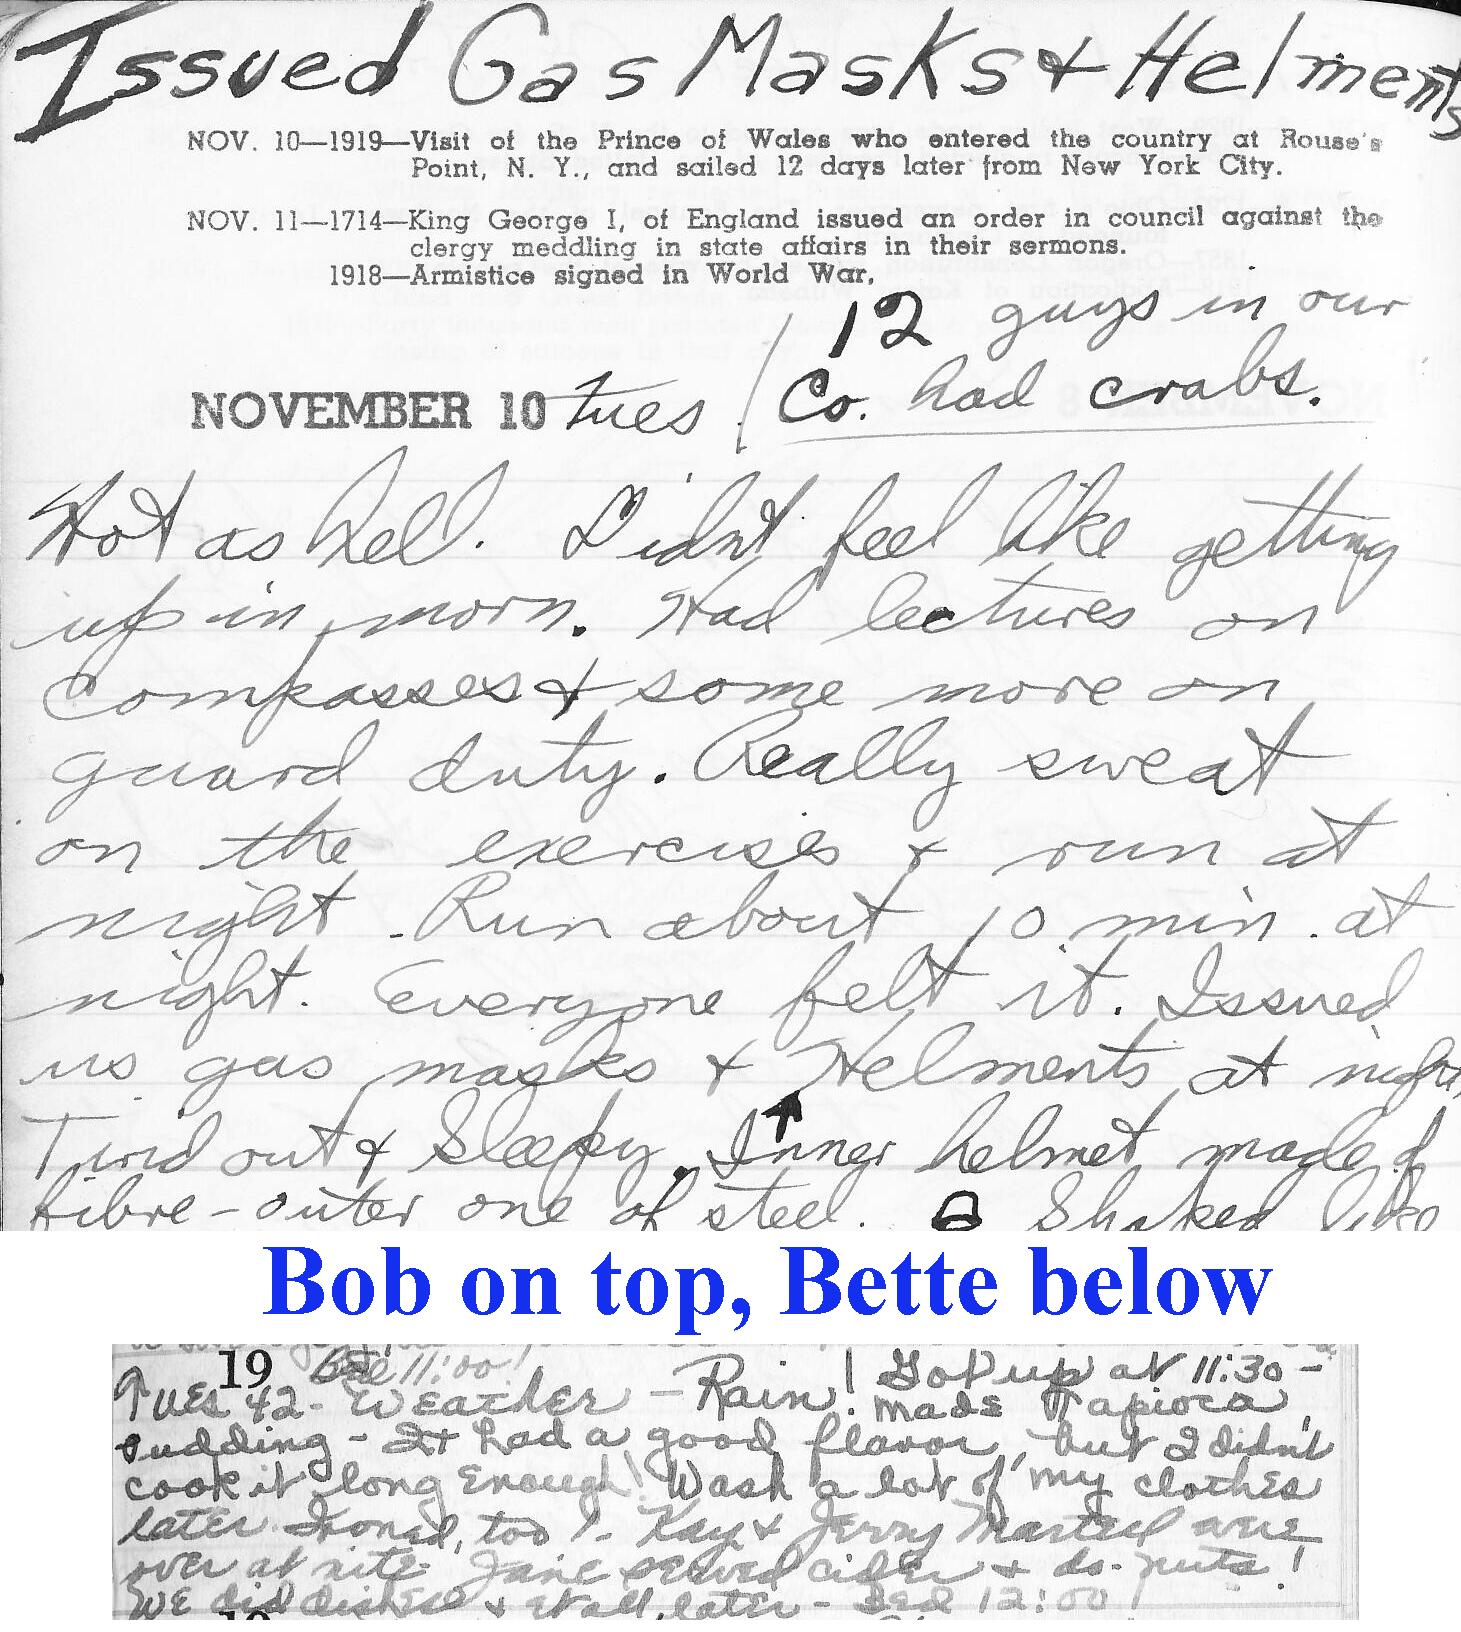 Issued Gas Masks & Helments
NOV. 10—1919—Visit of the Prince of Wales who entered the country at Rouse's
Point, N. Y., and sailed 12 days later from New York City.
NOV. 11—1714—King George I, of England issued an order in council against the
clergy meddling in state affairs in their sermons.
1918—Armistice signed in World War.
12 guys in our
NOVEMBER 10 Tues / Co. had crabs.
Hot as hell. Didnt feel like getting
up in morn. Had lectures on
Compasses & some more on
guard duty. Really sweat
on the exercises & run at
night. Run about 10 min. at
night. Everyone felt it. Issued
us gas masks & Helments at night.
Tired out & Sleepy. Inner helmet made of
fibre - outer one of steel. Shaped like
Bob on top, Bette below
19 Bed 11:00!
Tues 42 - Weather - Rain! Got up at 11:30 -
made Tapioca
Pudding - It had a good flavor, but I didn't
cook it long enough! Wash a lot of my clothes
later. Ironed, too! - Kay & Jerry Martell were
over at nite. Jane served cider & do-nuts!
We did dishes & et all, later - Bed 12:00!